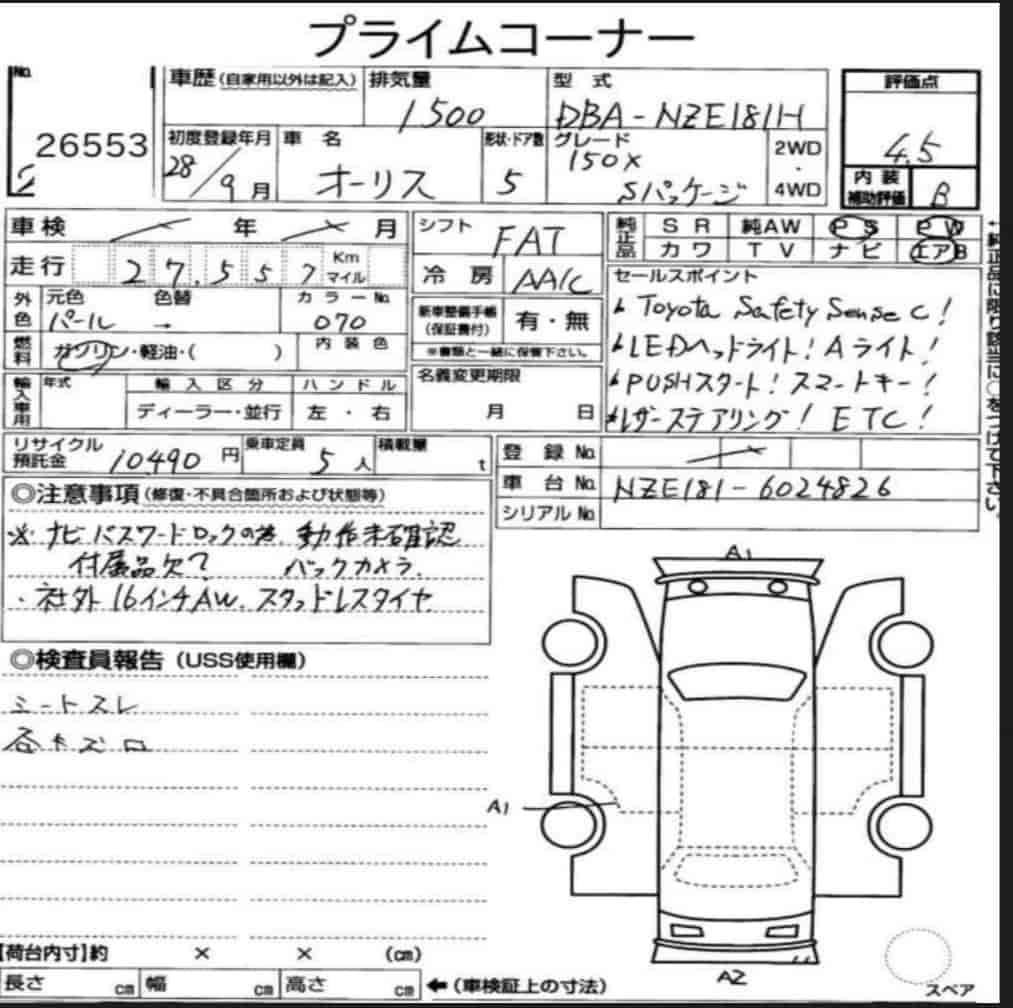 プライムコーナー
No. 26553
車歴(自家用以外は記入)
排気量 1500
型式 DBA-NZE181H
評価点 4.5
内装補助評価 B
初度登録年月 28/9月
車名 オーリス
形状・ドア数 5
グレード 150X Sパッケージ
2WD・4WD
車検 年 月
走行 27,557 Km マイル
シフト FAT
冷房 AA/C
純正品 SR 純AW PS PW
カワ TV ナビ エアB
←純正品に限り該当に○をつけて下さい。
外色 元色 パール 色替 → カラーNo. 070
燃料 ガソリン・軽油・( ) 内装色
新車整備手帳(保証書付) 有・無
※書類と一緒に保管下さい。
セールスポイント
Toyota Safety Sense C!
LEDヘッドライト! Aライト!
PUSHスタート! スマートキー!
レザーステアリング! ETC!
輸入車用 年式 輸入区分 ディーラー・並行 ハンドル 左・右
名義変更期限 月 日
リサイクル預託金 10490円
乗車定員 5人
積載量 t
登録No.
車台No. NZE181-6024826
シリアルNo.
◎注意事項(修復・不具合箇所および状態等)
※ナビパスワードロックの為、動作未確認
付属品欠? バックカメラ.
・社外16インチAW. スタッドレスタイヤ
◎検査員報告(USS使用欄)
シートスレ
各キズ凹
A1
A1
A2
スペア
【荷台内寸】約 × × (cm)
長さ cm 幅 cm 高さ cm ←(車検証上の寸法)